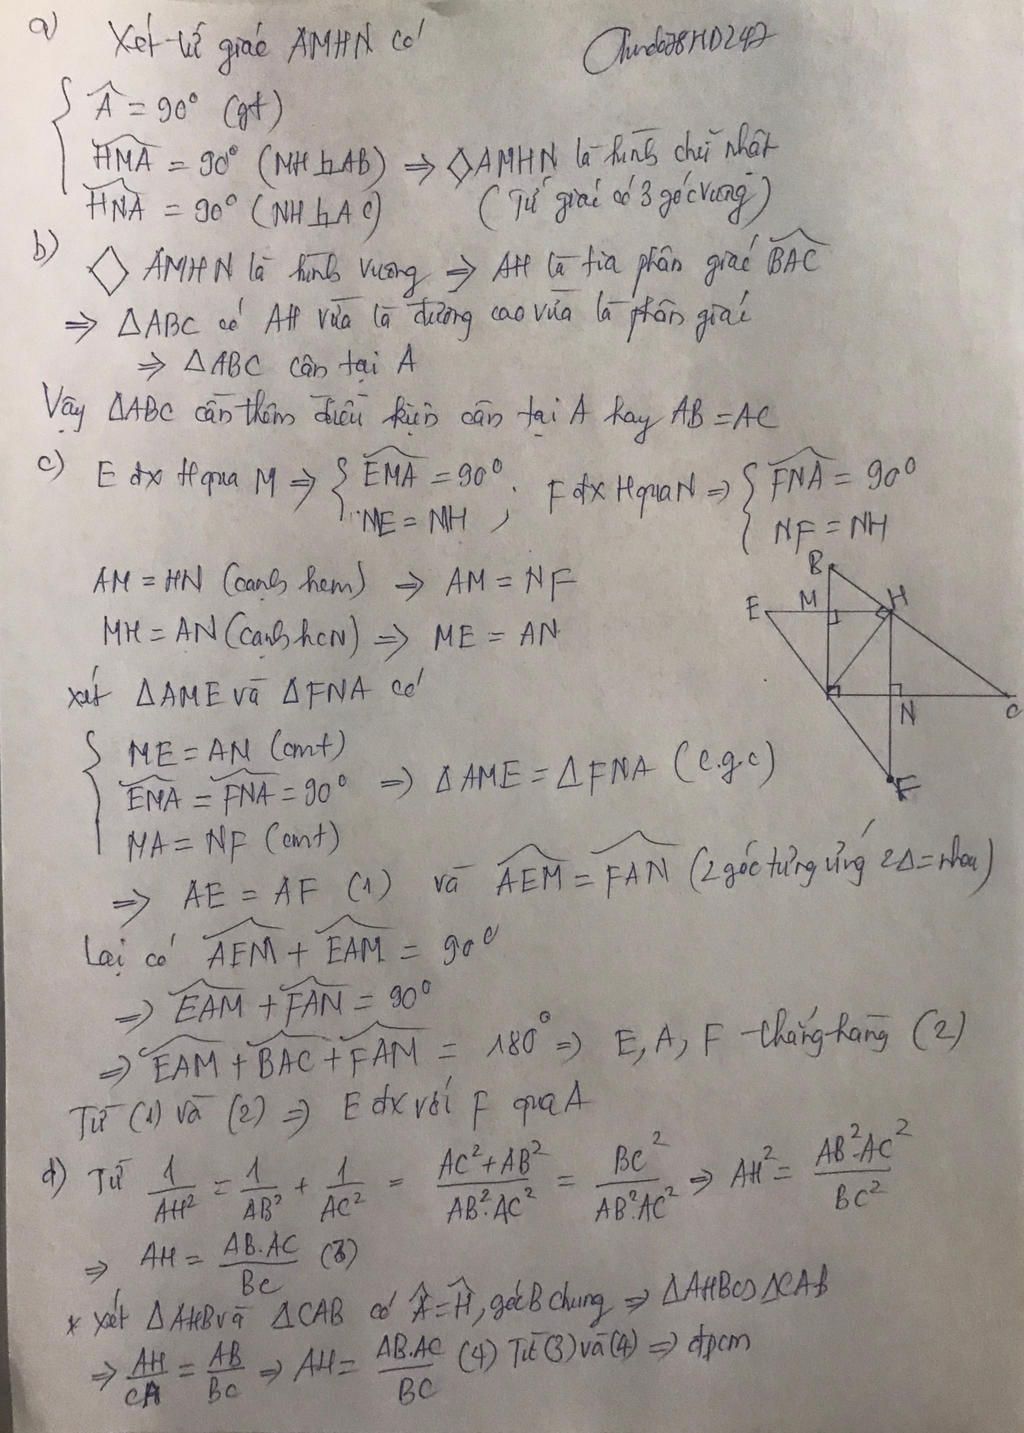 a) Xét tứ giác AMHN có
Â = 90° (gt)
HMA = 90° (MH⊥AB) ⇒ ◇AMHN là hình chữ nhật
HNA = 90° (NH⊥AC) (Tứ giác có 3 góc vuông)
b) ◇ AMHN là hình vuông ⇒ AH là tia phân giác BAC
⇒ ΔABC có AH vừa là đường cao vừa là phân giác
⇒ ΔABC cân tại A
Vậy ΔABC cần thêm điều kiện cân tại A hay AB = AC
c) E đx H qua M ⇒ { EMA = 90° ; F đx H qua N ⇒ { FNA = 90°
ME = MH , NF = NH
AM = HN (cạnh hcn) ⇒ AM = NF
MH = AN (cạnh hcn) ⇒ ME = AN
xét ΔAME và ΔFNA có
ME = AN (cmt)
EMA = FNA = 90° ⇒ ΔAME = ΔFNA (c.g.c)
MA = NF (cmt)
⇒ AE = AF (1) và AEM = FAN (2 góc tương ứng 2Δ = nhau)
Lại có AEM + EAM = 90°
⇒ EAM + FAN = 90°
⇒ EAM + BAC + FAM = 180° ⇒ E, A, F thẳng hàng (2)
Từ (1) và (2) ⇒ E đx với F qua A
d) Từ 1/AH² = 1/AB² + 1/AC² = (AC² + AB²)/(AB².AC²) = BC²/(AB².AC²) ⇒ AH² = AB².AC²/BC²
⇒ AH = AB.AC/BC (3)
* xét ΔAHB và ΔCAB có Â = Ĥ, góc B chung ⇒ ΔAHB∽ΔCAB
⇒ AH/CA = AB/BC ⇒ AH = AB.AC/BC (4) Từ (3) và (4) ⇒ đpcm
B
E M H
N C
F